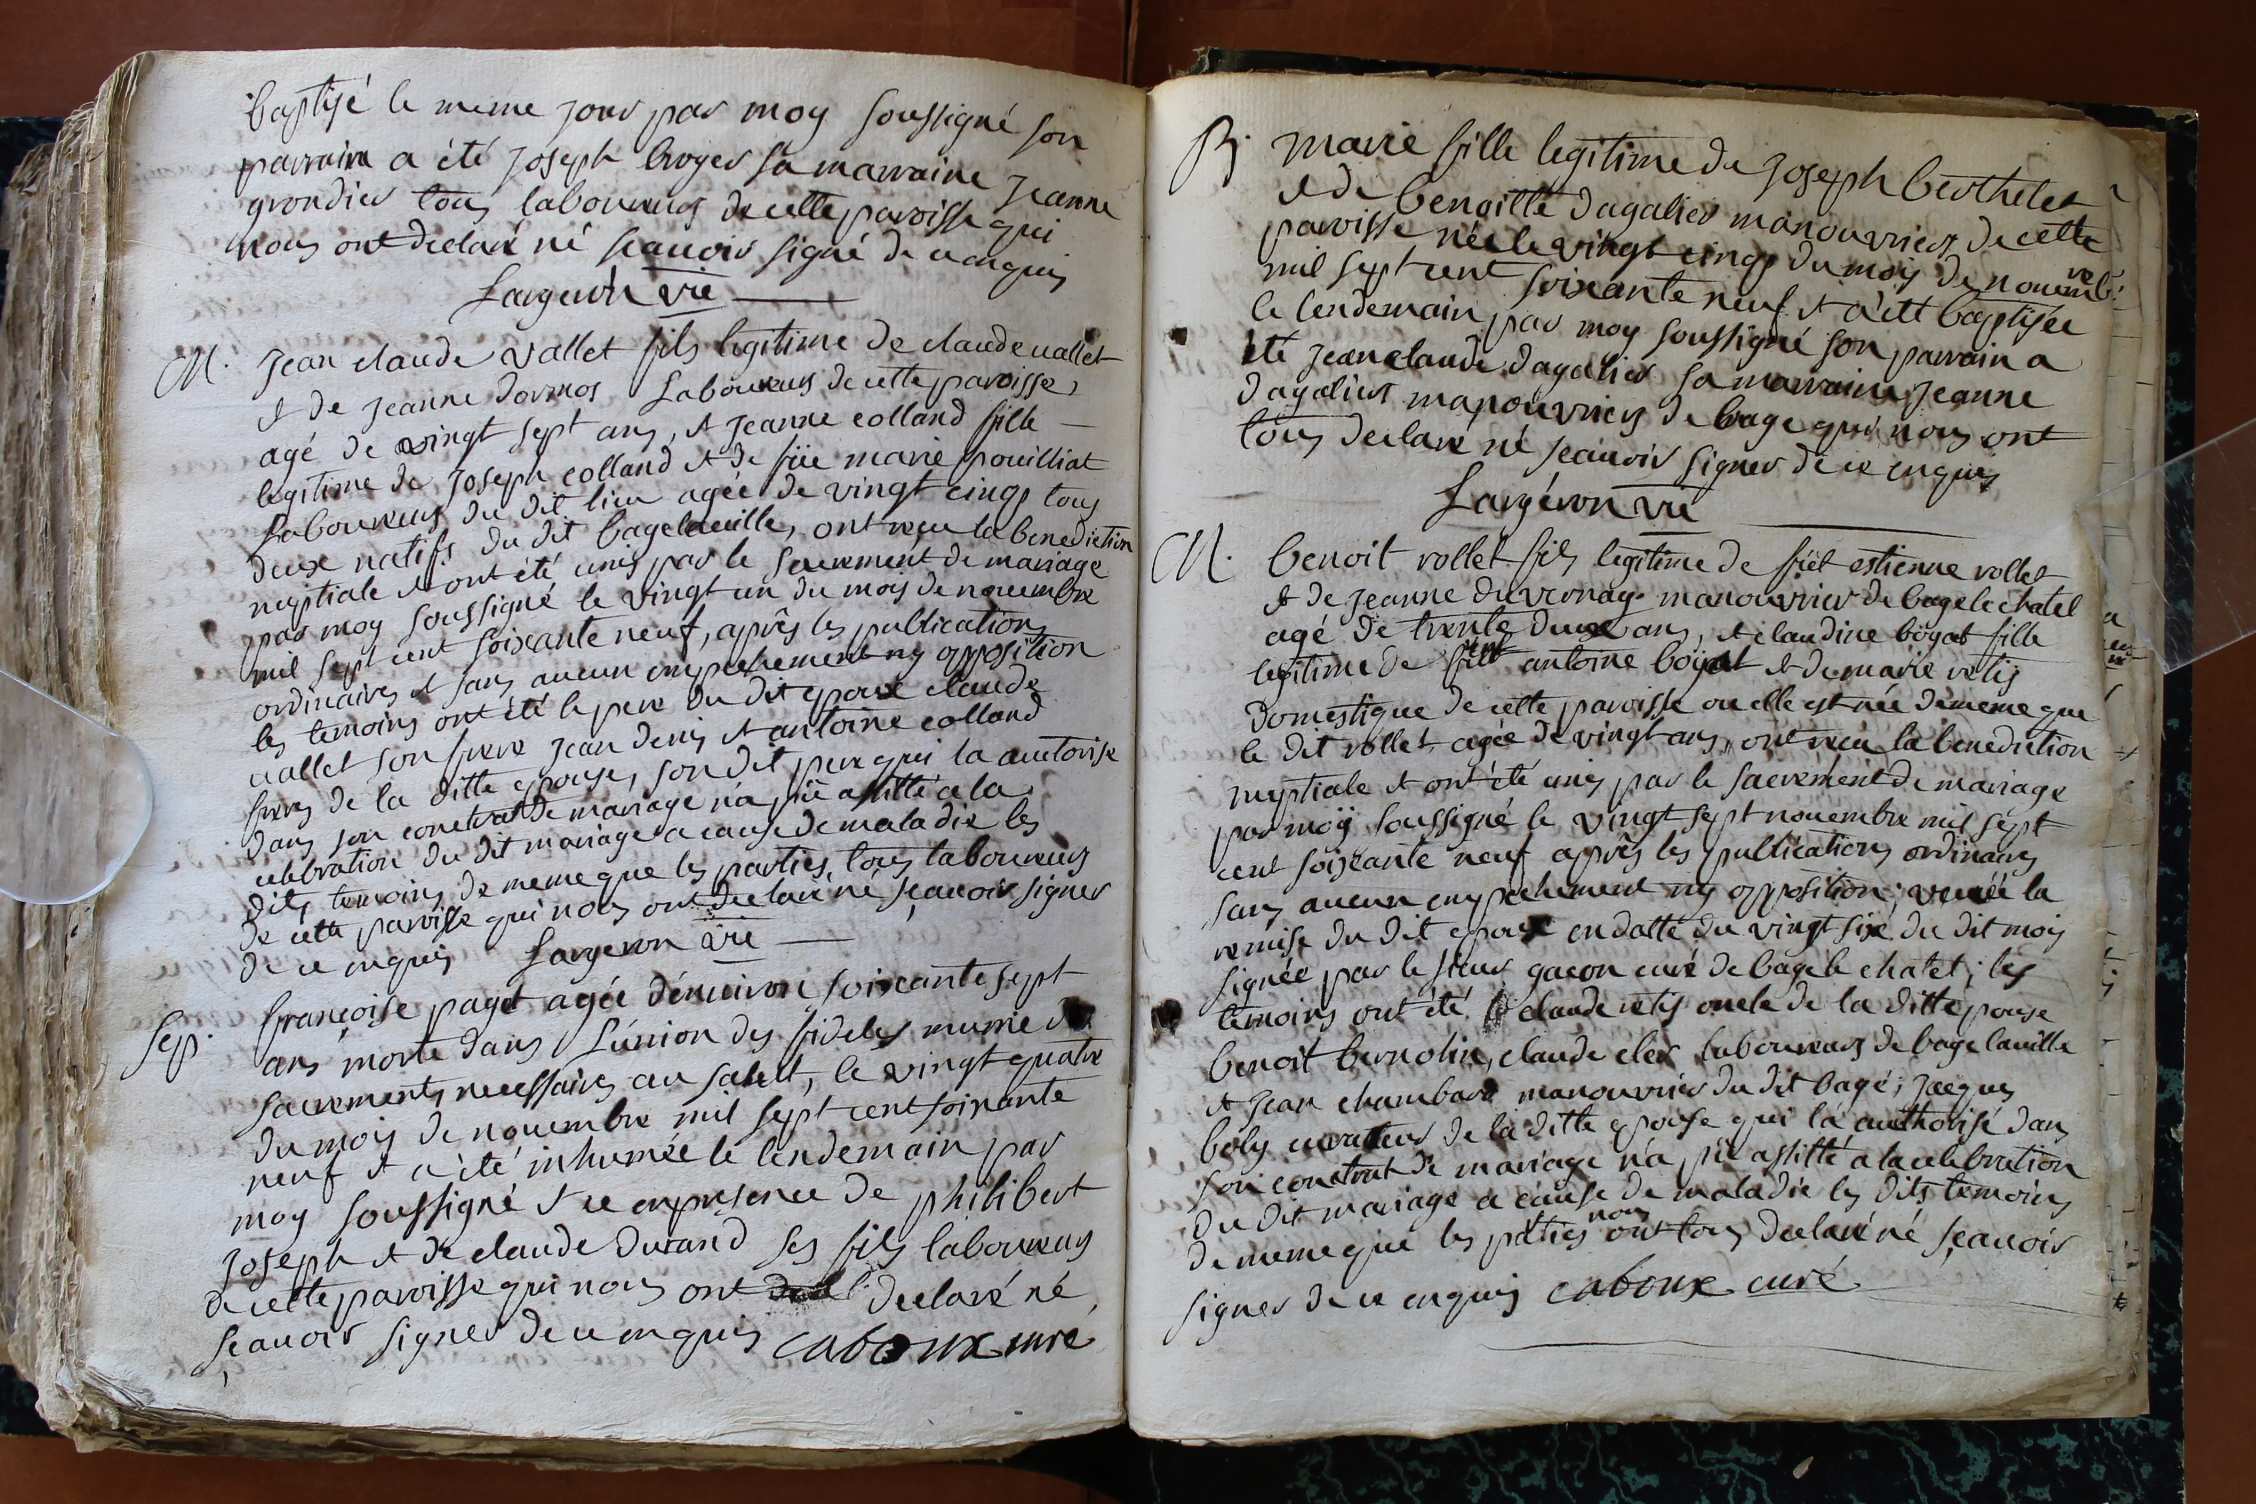 baptisé le meme jour par moy soussigné son
parrain a été joseph broyer sa marraine jeanne
grondier tous laboureurs de cette paroisse qui
nous ont declaré né sçauoir signé de ce enquis
Largeron vic
M. jean claude vallet fils legitime de claude uallet
et de jeanne dormos Laboureurs de cette paroisse,
agé de vingt sept ans, et jeanne colland fille
legitime de joseph colland et de füe marie pouilliat
Laboureurs du dit lieu agée de vingt cinq tous
deux natifs du dit bagelauille, ont reçu la benediction
nuptiale et ont été unis par le sacrement de mariage
par moy soussigné le vingt un du mois de nouembre
mil sept cent soixante neuf, après les publications
ordinaires et sans aucun empechement ny opposition
les temoins ont été le pere du dit epoux claude
uallet son frere jean denis et antoine colland
freres de la ditte epouse, son dit pere qui la auctorise
dans son conctrat de mariage n'a pü assitté a la
celebration du dit mariage a cause de maladie les
dits temoins de meme que les parties, tous laboureurs
de cette paroisse qui nous ont declaré né sçauoir signer
de ce enquis Largeron vic
Sep. françoise paget agée d'enuiron soixante sept
ans morte dans L'union des fideles munie des
sacrements necessaires au salut, le vingt quatre
du mois de nouembre mil sept cent soixante
neuf et a été inhumée le lendemain par
moy soussigné et ce en presence de philibert
joseph et de claude durand ses fils laboureurs
de cette paroisse qui nous ont declaré né
sçauoir signer de ce enquis caboux curé
B. marie fille legitime de joseph berthelet
et de benoitte dagalier manouvriers de cette
paroisse née le vingt cinq du mois de nouembre
mil sept cent soixante neuf et a été baptisée
le lendemain par moy soussigné son parrain a
été jean claude dagalier sa marraine jeanne
dagalier manouvriers de bage qui nous ont
tous declaré né sçauoir signer de ce enquis
Largéron vic
M. benoit rollet fils legitime de füt estienne rollet
et de jeanne duvernay manouvrier de bage le chatel
agé de trente deux ans, et claudine böyat fille
legitime de füt antoine boÿat et de marie vetis
domestique de cette paroisse ou elle est née de meme que
le dit rollet agée de vingt ans, ont reçu la benediction
nuptiale et ont été unis par le sacrement de mariage
par moÿ soussigné le vingt sept nouembre mil sept
cent soixante neuf après les publications ordinaires
sans aucun empechement ny opposition; vuëe la
remise du dit epoux en datte du vingt six du dit mois
signée par le sieur gacon curé de bage le chatel; les
temoins ont été claude vetis oncle de la ditte epouse
benoit bernolin, claude cler laboureurs de bage lauille
et jean chambard manouvrier du dit bagé; jacques
boly curateur de la ditte epouse qui la authorisé dans
son conctrat de mariage n'a pü assitté a la celebration
du dit mariage a cause de maladie les dits temoins
de meme que les parties nous ont tous declaré né sçauoir
signer de ce enquis caboux curé